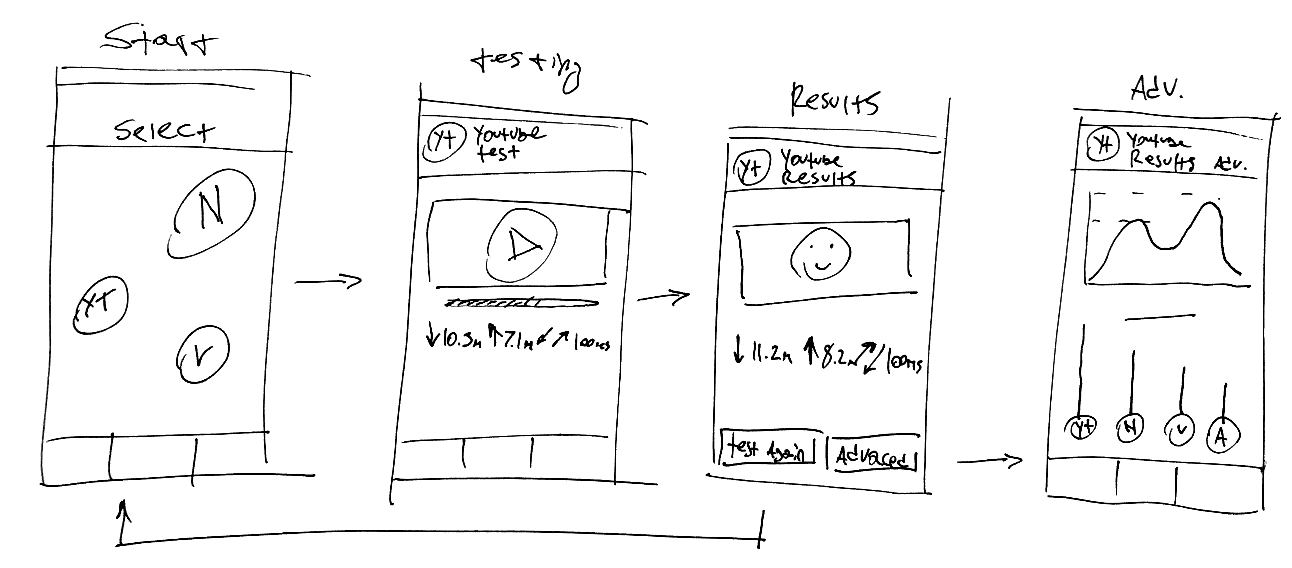 Start
Select
N
Yt
V
testing
Yt Youtube
test
↓10.3M ↑7.1M ↙↗ 100ms
Results
Yt Youtube
Results
↓ 11.2M ↑ 8.2M ↗↙ 100ms
test Again
Advaced
Adv.
Yt Youtube
Results Adv.
Yt N V A